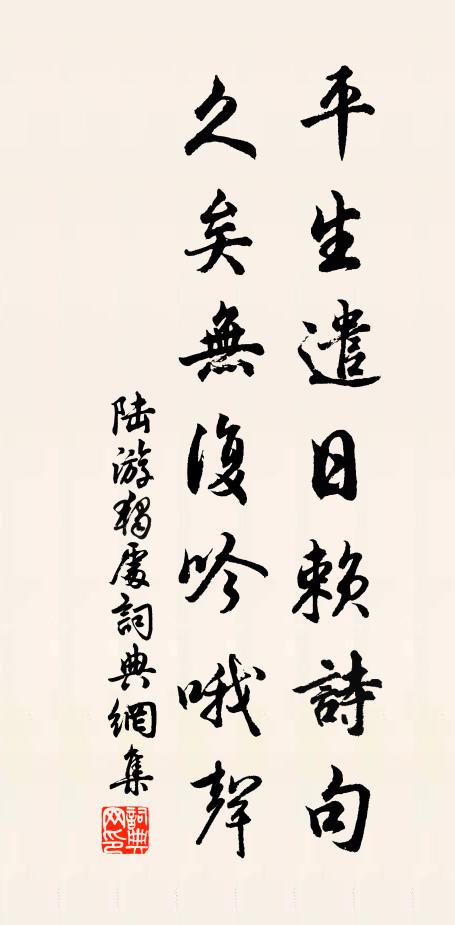 平生遣日賴詩句
久矣無復吟哦聲
陆游獨處詞典網集
詞典網印